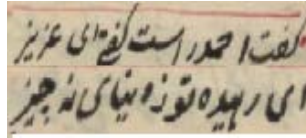 گفت احمد راست گفتی ای عزیز
ای رهیده تو ز دنیای نه چیز